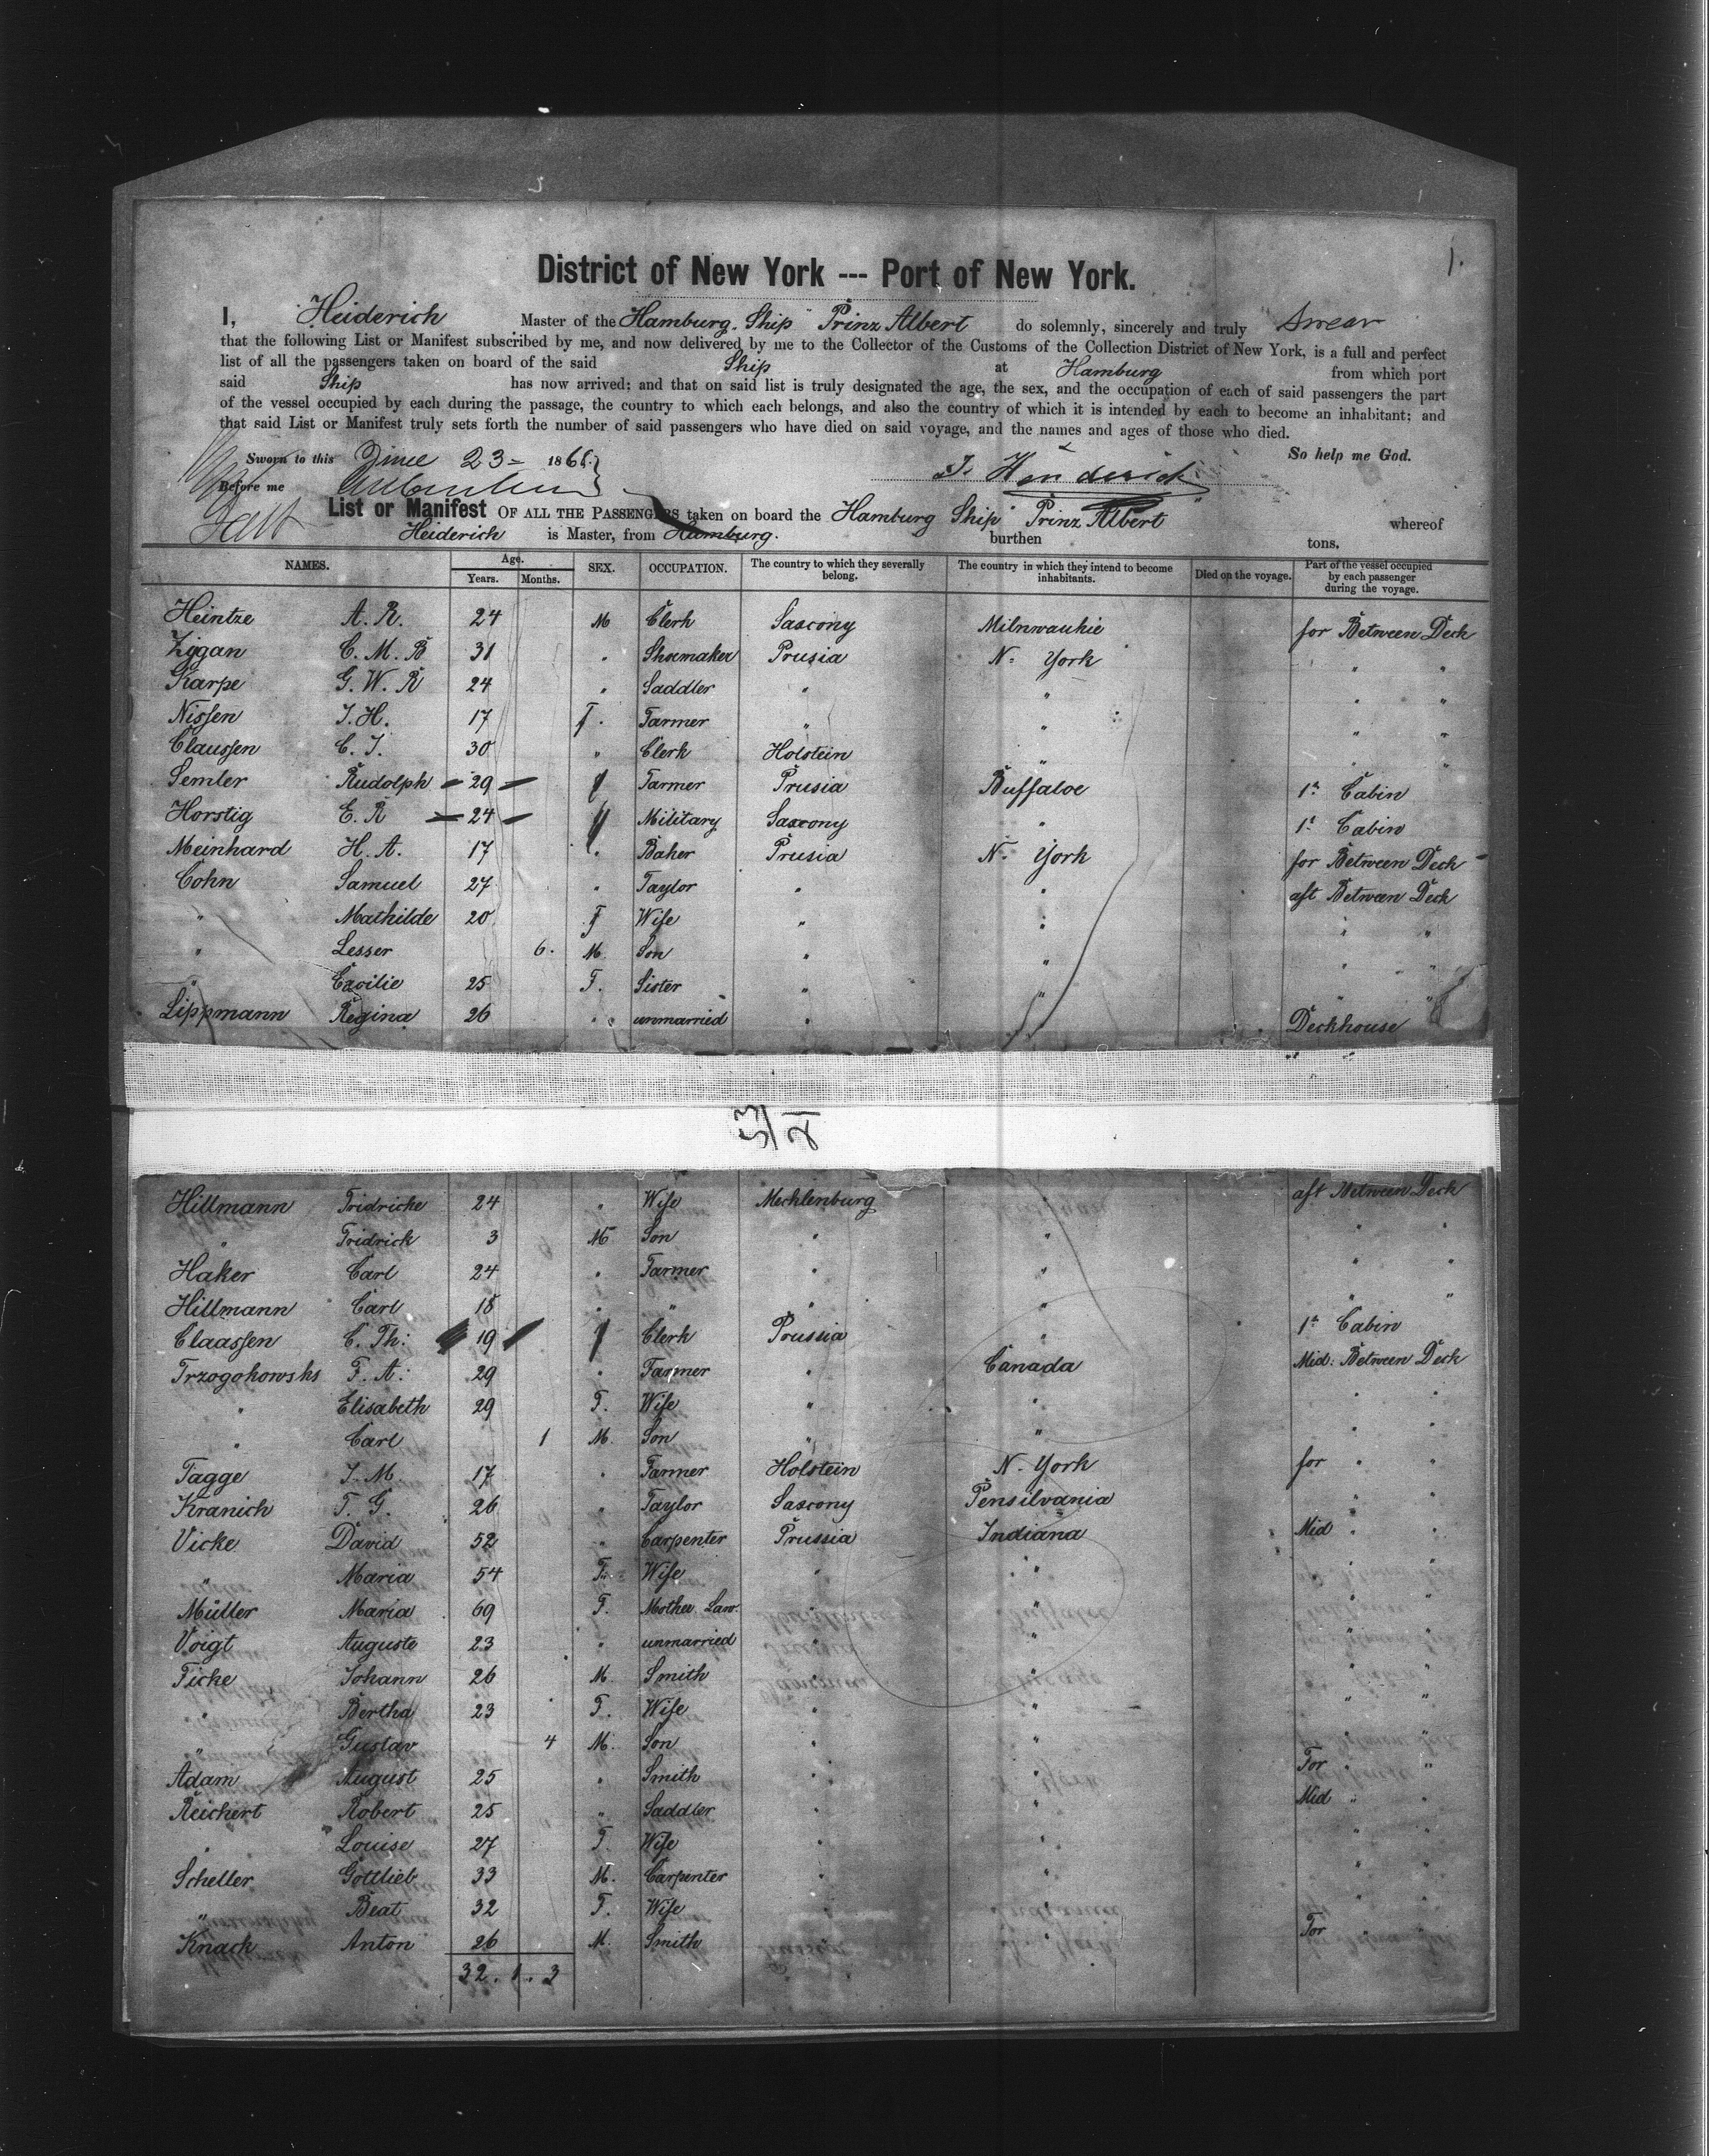 1.
District of New York --- Port of New York.
I, Heiderich Master of the Hamburg. Ship "Prinz Albert do solemnly, sincerely and truly swear
that the following List or Manifest subscribed by me, and now delivered by me to the Collector of the Customs of the Collection District of New York, is a full and perfect
list of all the passengers taken on board of the said Ship at Hamburg from which port
said Ship has now arrived; and that on said list is truly designated the age, the sex, and the occupation of each of said passengers the part
of the vessel occupied by each during the passage, the country to which each belongs, and also the country of which it is intended by each to become an inhabitant; and
that said List or Manifest truly sets forth the number of said passengers who have died on said voyage, and the names and ages of those who died.
Sworn to this June 23 = 186 So help me God.
Before me
List or Manifest OF ALL THE PASSENGERS taken on board the Hamburg Ship "Prinz Albert" whereof
Heiderich is Master, from Hamburg. burthen tons.
NAMES. Age. Years. Months. SEX. OCCUPATION. The country to which they severally belong. The country in which they intend to become inhabitants. Died on the voyage. Part of the vessel occupied by each passenger during the voyage.
Heintze A. R. 24 M Clerk Sascony Milnwaukie for Between Deck
Ziggan C. M. B 31 " Shoemaker Prusia N. York " "
Karpe G. W. R 24 " Saddler " " " "
Nissen J. H. 17 F. Farmer " " " "
Claussen C. J. 30 " Clerk Holstein " " "
Semler Rudolph 29 Farmer Prusia Buffaloe 1t Cabin
Horstig E. R 24 Military Sascony " 1t Cabin
Meinhard H. A. 17 " Baker Prusia N. York for Between Deck
Cohn Samuel 27 " Taylor " " aft Between Deck
" Mathilde 20 F Wife " " " "
" Lesser 6. M. Son " " " "
" Cacilie 25 F. Sister " " " "
Lippmann Regina 26 " unmarried " " Deckhouse
Hillmann Fridricke 24 " Wife Mecklenburg aft Between Deck
" Fridrick 3 M Son " " "
Haker Carl 24 " Farmer " " " "
Hillmann Carl 18 " " " " " "
Claassen C. Th: 19 Clerk Prussia " 1t Cabin
Trzogohowski F. A. 29 " Farmer " Canada Mid: Between Deck
" Elisabeth 29 F. Wife " " " "
" Carl 1 M. Son " " " "
Tagge J. M. 17 " Farmer Holstein N. York for " "
Kranich F. G. 26 " Taylor Sascony Pensilvania " "
Vicke David 52 " Carpenter Prussia Indiana Mid " "
" Maria 54 F. Wife " " " "
Müller Maria 69 F. Mother Law. " " " "
Voigt Auguste 23 " unmarried " " " "
Ficke Johann 26 M. Smith " " " "
" Bertha 23 F. Wife " " " "
" Gustav 4 M. Son " " " "
Adam August 25 " Smith " " For " "
Reichert Robert 25 " Saddler " " Mid " "
" Louise 27 F. Wife " " " "
Scheller Gottlieb 33 M. Carpenter " " " "
" Beat 32 F. Wife " " " "
Knack Anton 26 M. Smith " " For " "
32. 1. 3